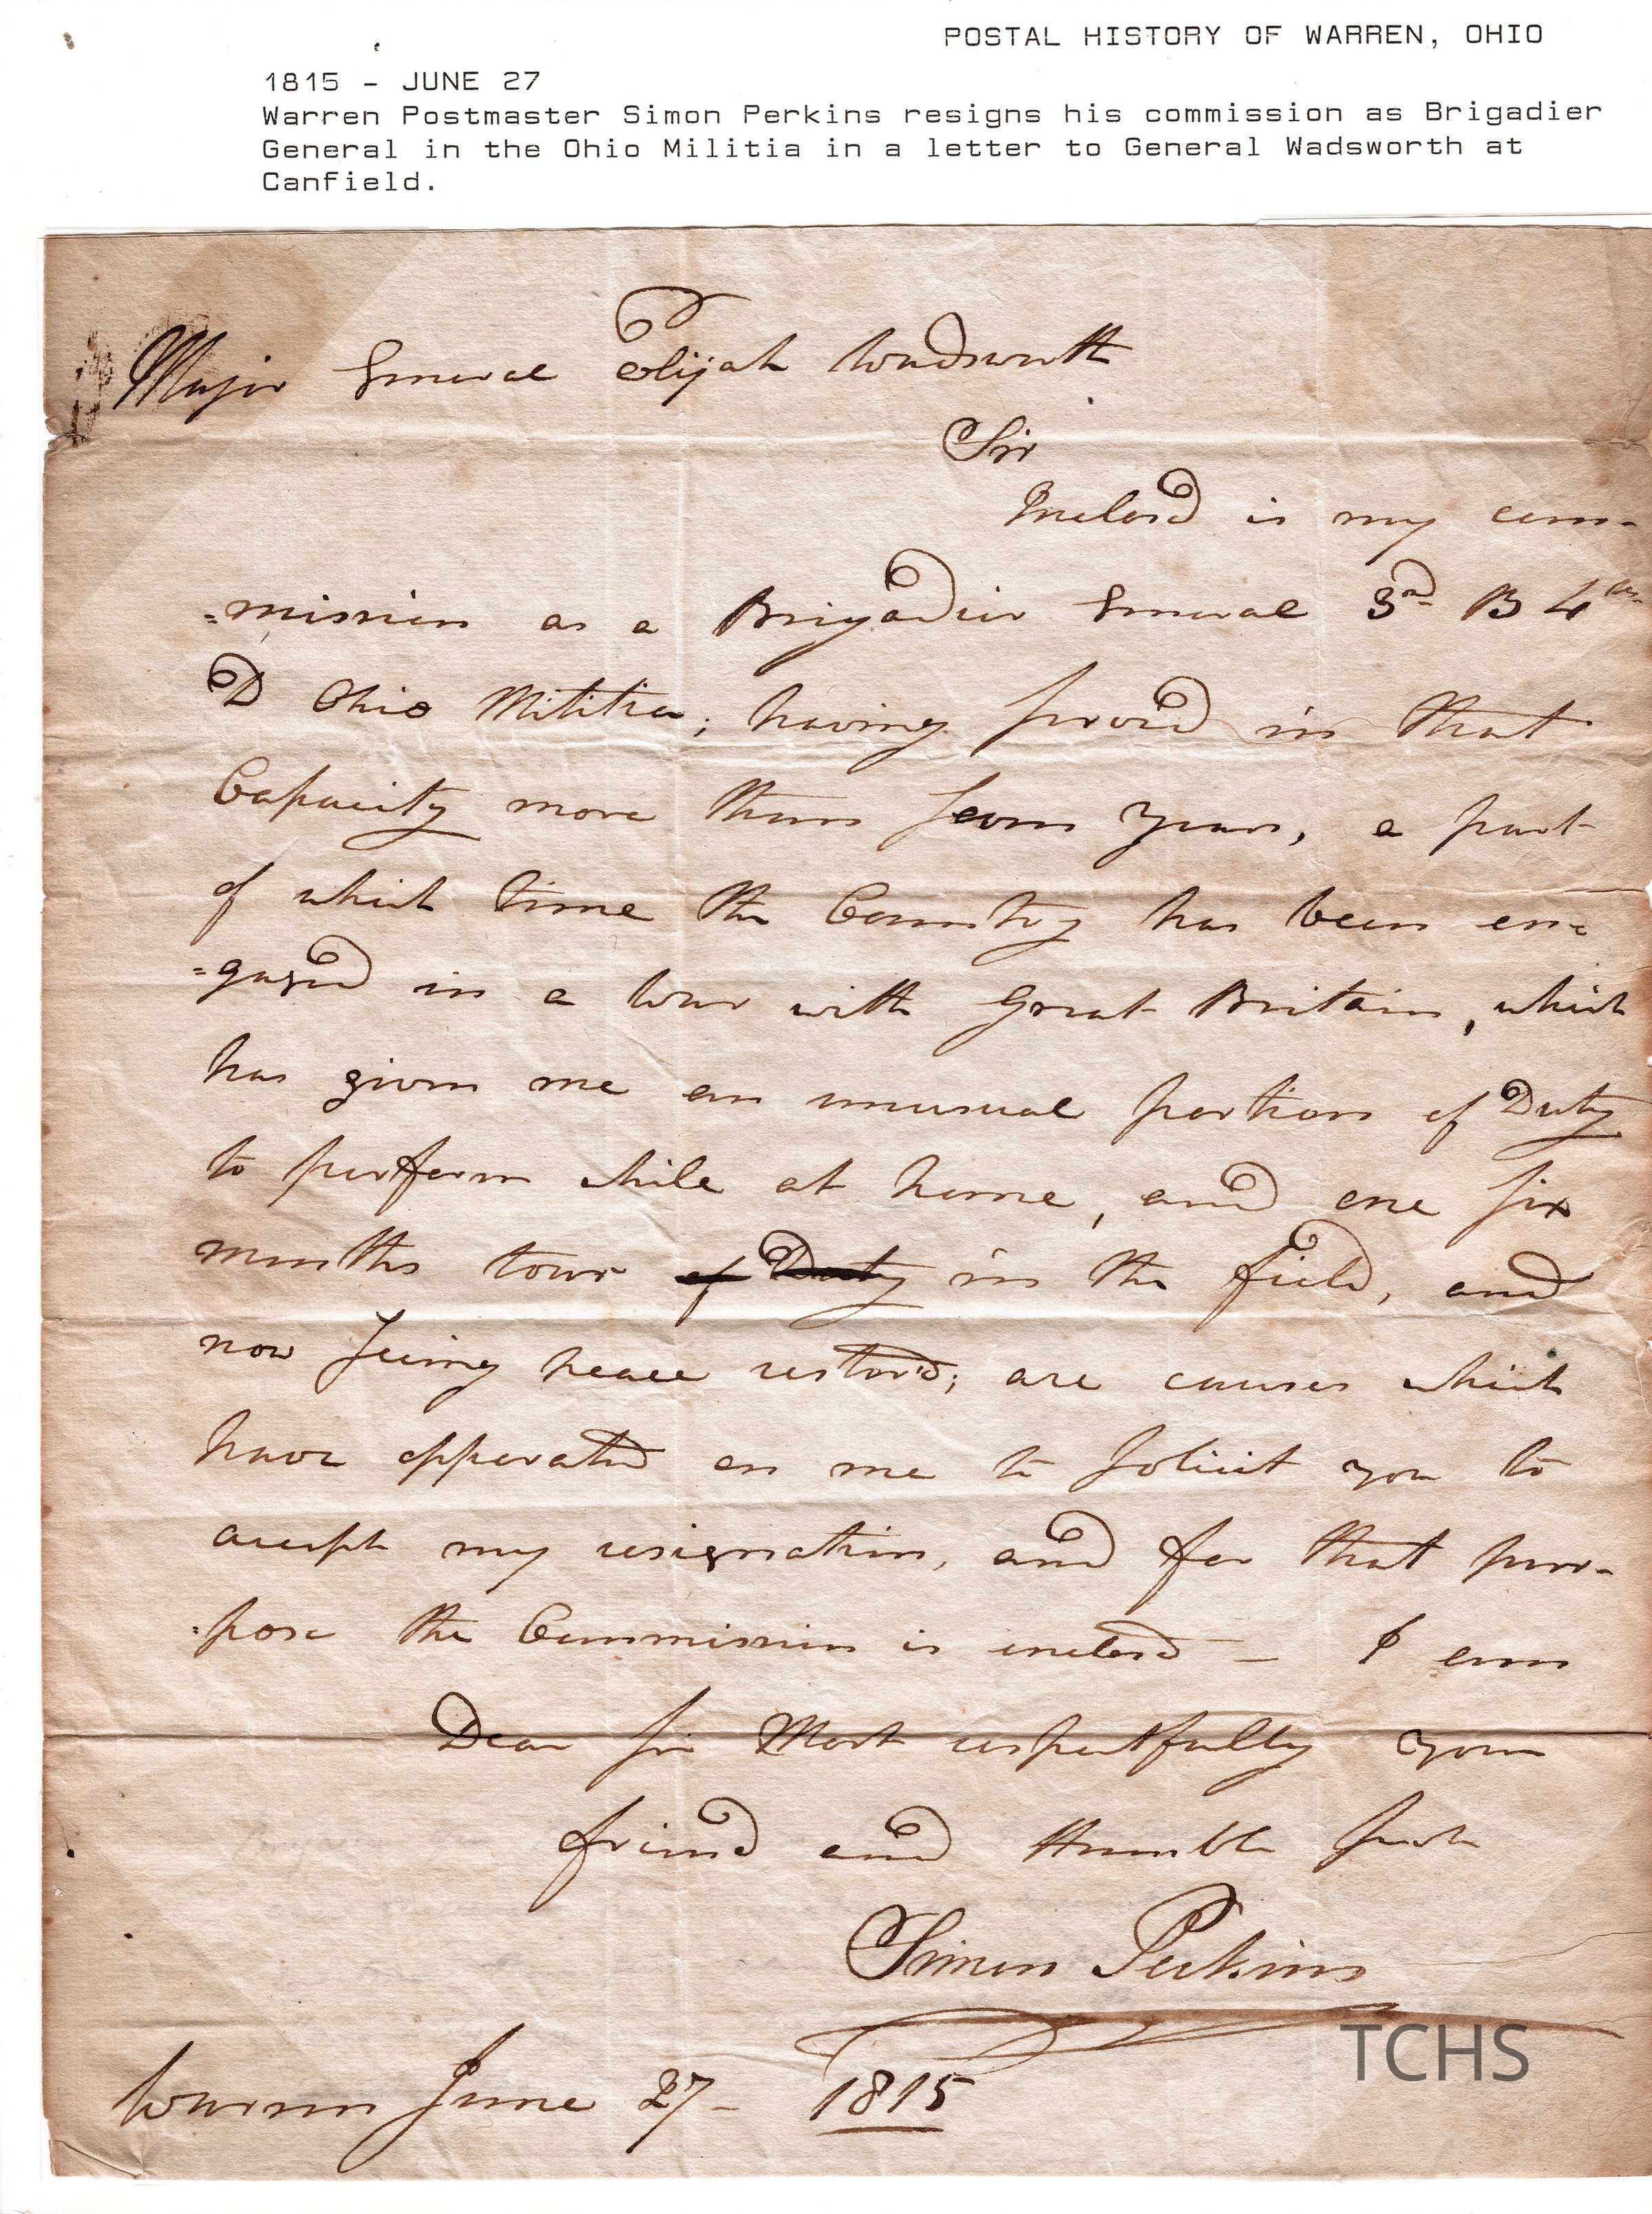 POSTAL HISTORY OF WARREN, OHIO
1815 - JUNE 27
Warren Postmaster Simon Perkins resigns his commission as Brigadier
General in the Ohio Militia in a letter to General Wadsworth at
Canfield.
Major General Elijah Wadsworth
Sir
Inclosd is my com-
=mission as a Brigadier General 3rd B 4th
D Ohio Militia; having servd in that
Capacity more than seven years, a part
of which time the Country has been en=
=gaged in a War with Great Britain, which
has given me an unusual portion of Duty
to perform while at home, and one six
months tour of Duty in the field, and
now seeing peace restord; are causes which
have opperated on me to solicit you to
accept my resignation, and for that pur-
=pose the Commission is inclosd — I am
Dear sir Most respectfully your
friend and Humble Servt
Simon Perkins
Warren June 27 - 1815
TCHS